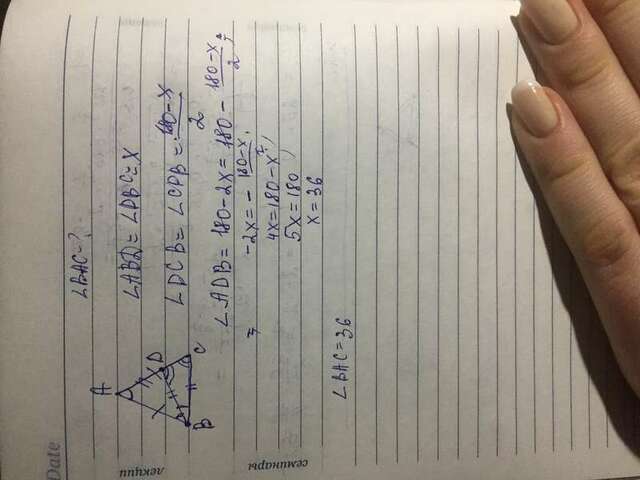 Date
лекции
семинары
∠BAC-?
A
D
B
C
∠ABD = ∠DBC = X
∠DCB = ∠CDB = 180-X
2
∠ADB = 180-2X = 180 - 180-X
2
-2X = - 180-X
2
4X = 180-X
5X = 180
X = 36
∠BAC = 36